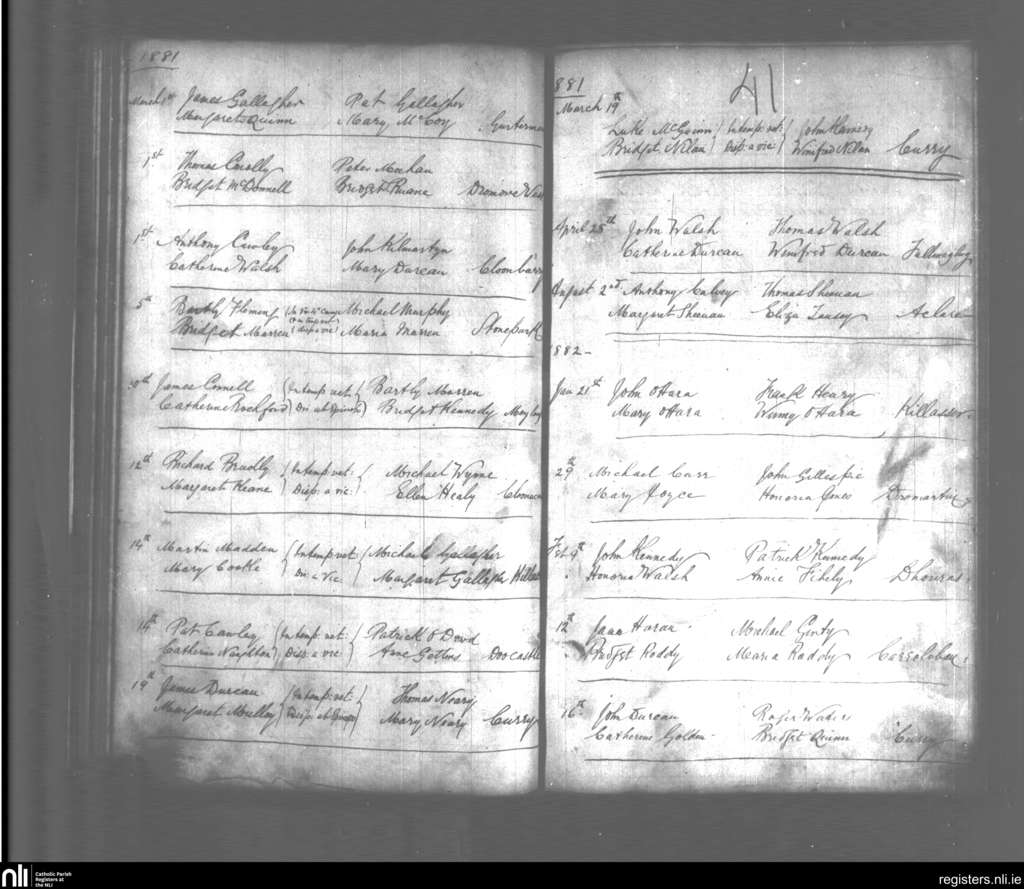 1881
March 1st James Gallagher Pat Gallagher
Margaret Quinn Mary McCoy
1st Thomas Conolly Peter Meehan
Bridget McDonnell Bridget Ruane Dromore West
1st Anthony Cawley John Kilmartyn
Catherine Walsh Mary Durcan
5th Bartly Fleming Michael Murphy
Bridget Marren Maria Marren Stonepark
James Connell (In temp: vet: Bartly Marren
Catherine Rochford Bridget Kennedy
12th Richard Bradly (In temp: vet: Michael Wynne
Margaret Keane Disp: a vic: Ellen Healy
14th Martin Madden (In temp: vet: Michael Gallagher
Mary Cooke Dis a Vic Margaret Gallagher
14th Pat Cawley (In temp: vet: Patrick O Dowd
Catherine Naughton Disp: a vic Anne Gettins Doocastle
19th James Durcan (In temp: vet: Thomas Neary
Margaret Mulloy Mary Neary Curry
881 41
March 19th
Luke McGuinn (In temp: vet:
Bridget Nilan Disp: a vic Winifred Nilan Curry
April 25th John Walsh Thomas Walsh
Catherine Durcan Winifred Durcan
August 2nd Anthony Culvey Thomas Sheenan
Margaret Sheenan Eliza Tansey Aclare
1882 -
Jan 21st John O Hara Frank Henry
Mary O Hara Winny O Hara Killasser
29th Michael Carr John Gillespie
Mary Joyce Honoria Jones
Feb 9th John Kennedy Patrick Kennedy
Honoria Walsh Annie Fihely
12th Horan Michael Ginty
Bridget Roddy Maria Roddy
16th John Durcan Roger Waters
Catherine Golden Bridget Quinn Curry
nli
Catholic Parish
Registers at
the NLI
registers.nli.ie